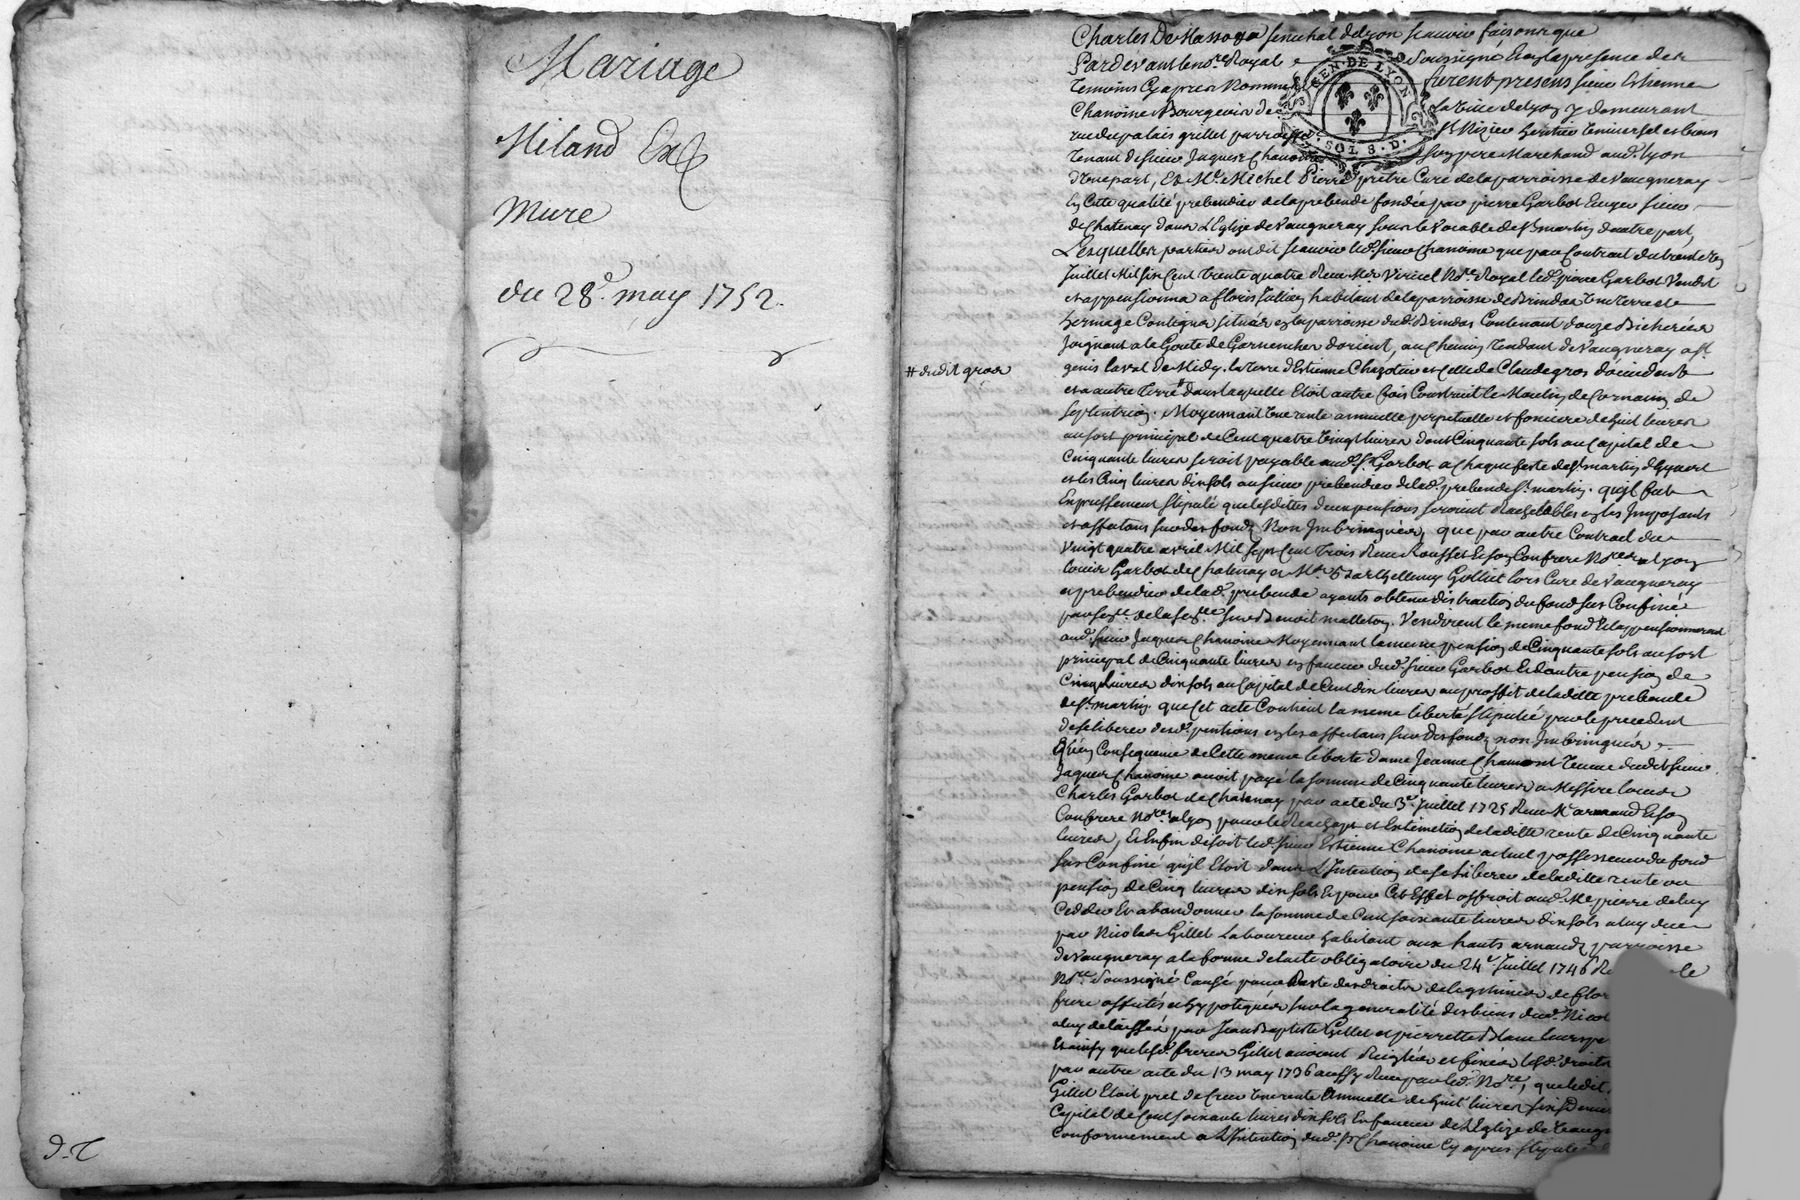 Mariage
Miland Et
Mure
du 28e. may 1752.
d. T.
# dudit gros
Charles De Massora senechal de Lyon scavoir faisons que
Pardevant le nore. Royal soussigné Et en la presence des
temoins cy apres Nommés furent presens sieur Estienne
Chanoine Bourgeois de la ville de Lyon y demeurant
rue du palais grillet parroisse St. Nizier heritier universel et biens
tenant de sieur Jaques Chanoine son pere Marchand aud. Lyon
GEN. DE LYON
SOLS. D.
d'une part, Et Me. Michel Pierre prêtre Curé de la parroisse de Vaugneray
En Cette qualité prebendier de la prebende fondée par pierre Garbot Ecuyer sieur
de Chatenay dans l'Eglize de Vaugneray sous le Vocable de St. martin d'autre part,
Lesquelles parties ont dit scavoir led. sieur Chanoine que par Contract du trente un
Juillet Mil six Cent trente quatre Receu Me. Viricel Nore. Royal led. pierre Garbot Vendit
et appensionna a floris Jullien habitant de la parroisse de Brindas une terre et
hermage Contigus situés en la parroisse dud. Brindas Contenant douze Bicherées
Joignant a la Goute de Garnencher d'orient, au Chemin tendant de Vaugneray a St.
genis laval de Midy, la terre d'Estienne Chazotier et Celle de Claude gros d'occident
et a autre terre # dans laquelle Etoit autre fois Construit le Moulin de Cornauin de
septentrion. Moyennant une rente annuelle perpetuelle et fonciere de huit livres
au sort principal de Cent quatre vingt livres dont Cinquante sols au Capital de
Cinquante livres seroit payable aud. Sr. Garbot a Chaque feste de St. martin d'hyvert
et les Cinq livres dix sols au sieur prebendier de lad. prebende St. martin. qu'il fut
Expressement stipulé que lesdittes deux pensions seroient Rachetables en les Imposants
et affectans sur des fonds Non Imbringués, que par autre Contract du
Vingt quatre avril Mil sept Cent trois Receu Rousset Et son Confrere Nores. a Lyon
Louis Garbot de Chatenay et Me. Barthellemy Golliet lors Curé de Vaugneray
et prebendier de lad. prebende ayants obtenu distraction du fond sus Confiné
par sce. de la sce. sur Benoit malleton. Vendirent le meme fond Et l'appensionnerent
aud. sieur Jaques Chanoine Moyennant la meme pension de Cinquante sols au sort
principal de Cinquante livres en faveur dud. sieur Garbot Et d'autre pension de
Cinq livres dix sols au Capital de Cent dix livres au proffit de laditte prebende
de St. martin. que Cet acte Contient la meme liberté stipulée par le precedent
de se liberer desd. pentions en les affectans sur des fonds non Imbringués
Qu'en Consequence de Cette meme liberté dame Jeanne Chamont veuve dudit sieur
Jaques Chanoine auoit payé la somme de Cinquante livres a Messire Louis
Charles Garbot de Chatenay par acte du 3e. Juillet 1725 Receu Me. armand Et son
Confrere Nores. a Lyon pour le Rachapt et Extinction de laditte rente de Cinquante
livres, Et Enfin disoit led. sieur Estienne Chanoine actuel possesseur du fond
sus Confiné qu'il Etoit dans l'Intention de se liberer de laditte rente ou
pension de Cinq livres dix sols Et pour Cet Effet offroit aud. Me. pierre de luy
Ceder Et abandonner la somme de Cent soixante livres dix sols a luy due
par Nicolas Gillet Laboureur habitant aux hauts arnauds parroisse
de Vaugneray a la forme de l'acte obligatoire du 24e. Juillet 1746 Receu le
Nore. Soussigné Causé pour Reste des droits de legitimes de
frere affectés et hypotequés sur la generalité des biens dud. Nicol
a luy delaissés par Jean Baptiste Gillet et pierrette Blanc leurs pe
Et ainsy que lesd. freres Gillet auoient Reiglés et fixés lesd. droits
par autre acte du 13 may 1736 aussy Receu par led. Nore., que ledit.
Gillet Etoit pret de Creer une rente Annuelle de huit livres six Denie
Capital de Cent soixante livres dix sols En faveur de l'Eglize de Vaugn
Conformement a l'Intention dud. Sr. Chanoine Cy apres stipulé